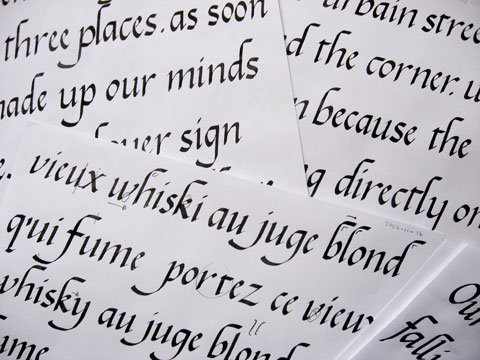 three places. as soon
made up our minds
sign
urbain
the corner.
because the
directly on
vieux whiski au juge blond
qui fume portez ce vieux
whisky au juge blond
fume